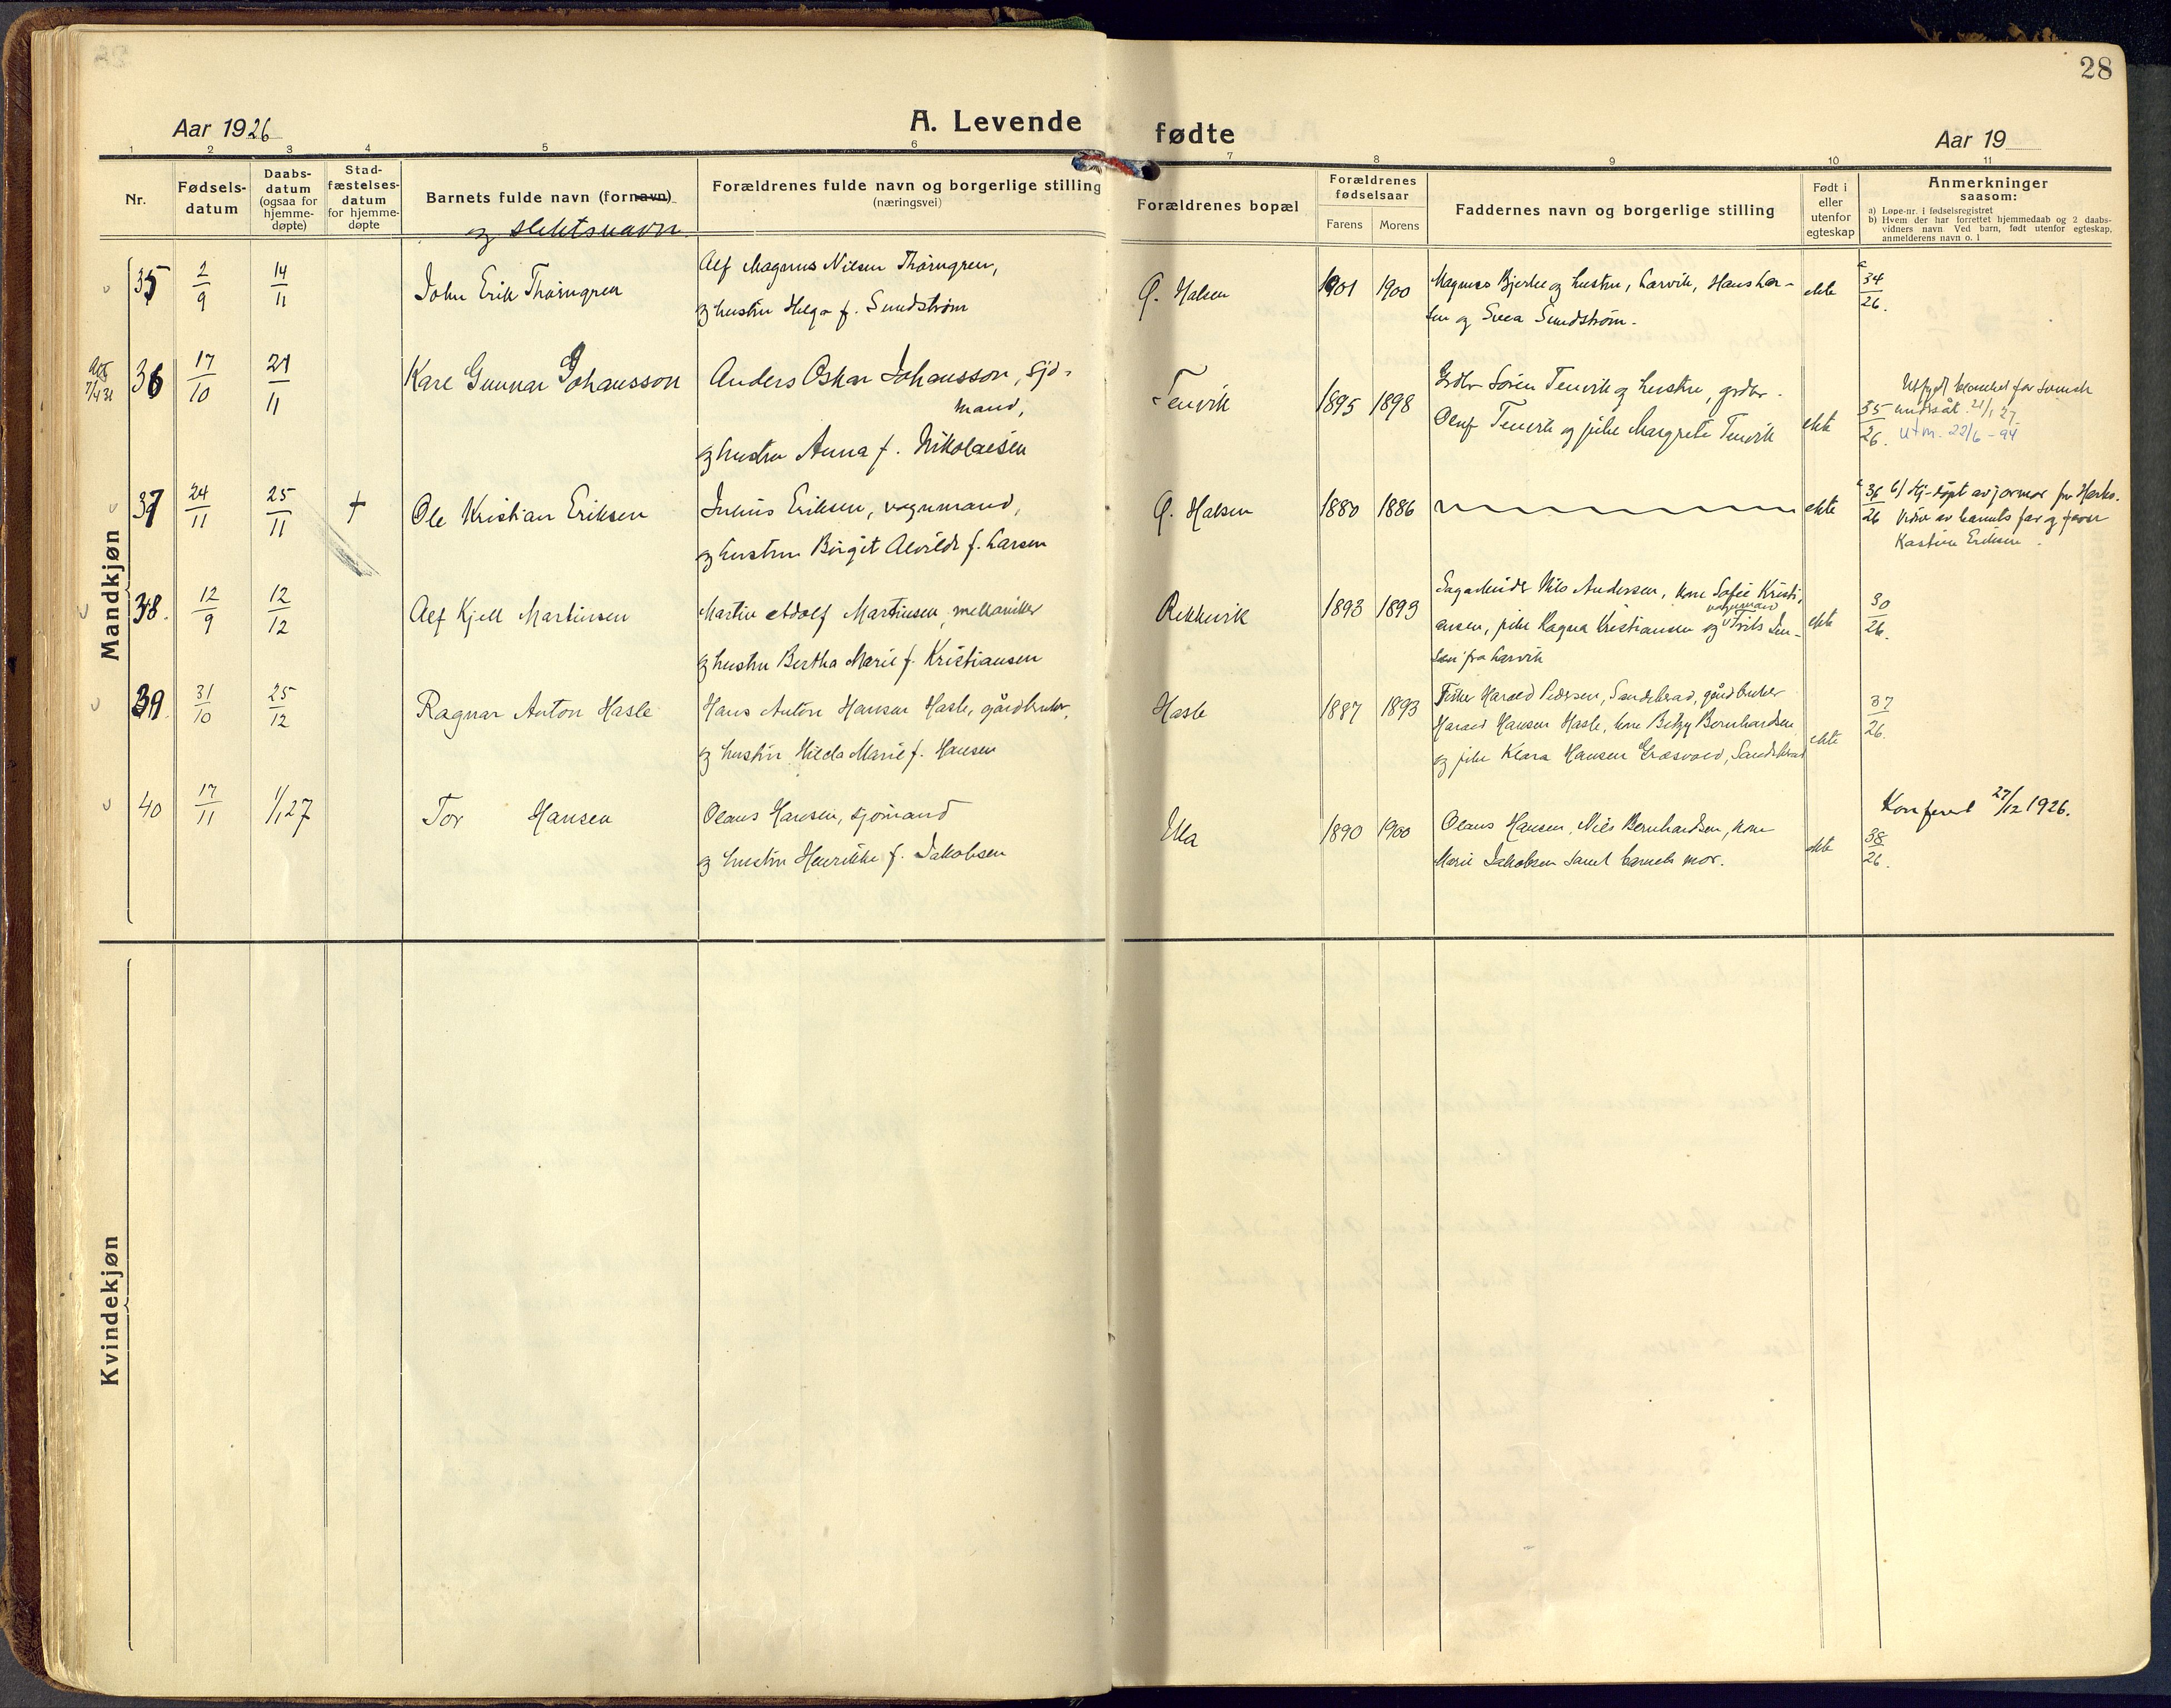 28
Aar 1926
A. Levende fødte
Aar 19
1 2 3 4 5 6 7 8 9 10 11
Nr.
Fødsels-
datum
Daabs-
datum
(ogsaa for
hjemme-
døpte)
Stad-
fæstelses-
datum
for hjemme-
døpte
Barnets fulde navn (fornavn)
og slektsnavn.
Forældrenes fulde navn og borgerlige stilling
(næringsvei)
Forældrenes bopæl
Forældrenes
fødselsaar
Farens Morens
Faddernes navn og borgerlige stilling
Født i
eller
utenfor
egteskap
Anmerkninger
saasom:
a) Løpe-nr. i fødselsregistret
b) Hvem der har forrettet hjemmedaab og 2 daabs-
vidners navn Ved barn, født utenfor egteskap,
anmelderens navn o. l
Mandkjøn
35 2/9 14/11 John Erik Thørngren
Alf Magnus Nilsen Thørngren,
og hustru Helga f. Sundstrøm
Ø. Halsen 1901 1900
Magnus Bjerke og hustru, Larvik, Hans Lar-
sen og Svea Sundstrøm.
ekte
a 34/26.
36 17/10 21/11 Kare Gunnar Johansson
Anders Oskar Johansson, sjø-
mand,
og hustru Anna f. Nikolaisen
Tenvik 1895 1898
Grdbr Søren Tenvik og hustru, grdbr.
Oluf Tenvik og pike Margrete Tenvik
ekte
35/26.
Utfyldt blanket for svensk
undersåt. 21/1 27
Utm. 22/6 - 94
37 24/11 25/11 † Ole Kristian Eriksen
Julius Eriksen, vognmand,
og hustru Birgit Alvilde f. Larsen
Ø. Halsen 1880 1886
ekte
a 36/26 b) Hj-døpt av jormor fru
Vidne av barnets far og
Kastine Eriksen.
38. 12/9 12/12 Alf Kjell Martinsen
Martin Adolf Martinsen, mekaniker
og hustru Bertha Marie f. Kristiansen
Rekkevik 1893 1893
Sagarbeider Nils Andersen, kone Sofie Kristi-
ansen, pike Ragna Kristiansen og vognmand Frits Jen-
sen fra Larvik
ekte
30/26.
39. 31/10 25/12 Ragnar Anton Hasle
Hans Anton Hansen Hasle, gårdbruker,
og hustru Hilda Marie f. Hansen
Hasle 1887 1893
Fisker Harald Pedersen, gårdbruker
Harald Hansen Hasle, kone Betzy Bernhardsen
og pike Klara Hansen Græsvold,
ekte
37/26.
40 17/11 1/1 27 Tor Hansen
Olaus Hansen, sjømand
og hustru Henrikke f. Jakobsen
Ula 1890 1900
Olaus Hansen, Nils Bernhardsen, kone
Marie Jakobsen samt barnets mor.
ekte
Konferert 27/12 1926.
38/26.
Kvindekjøn